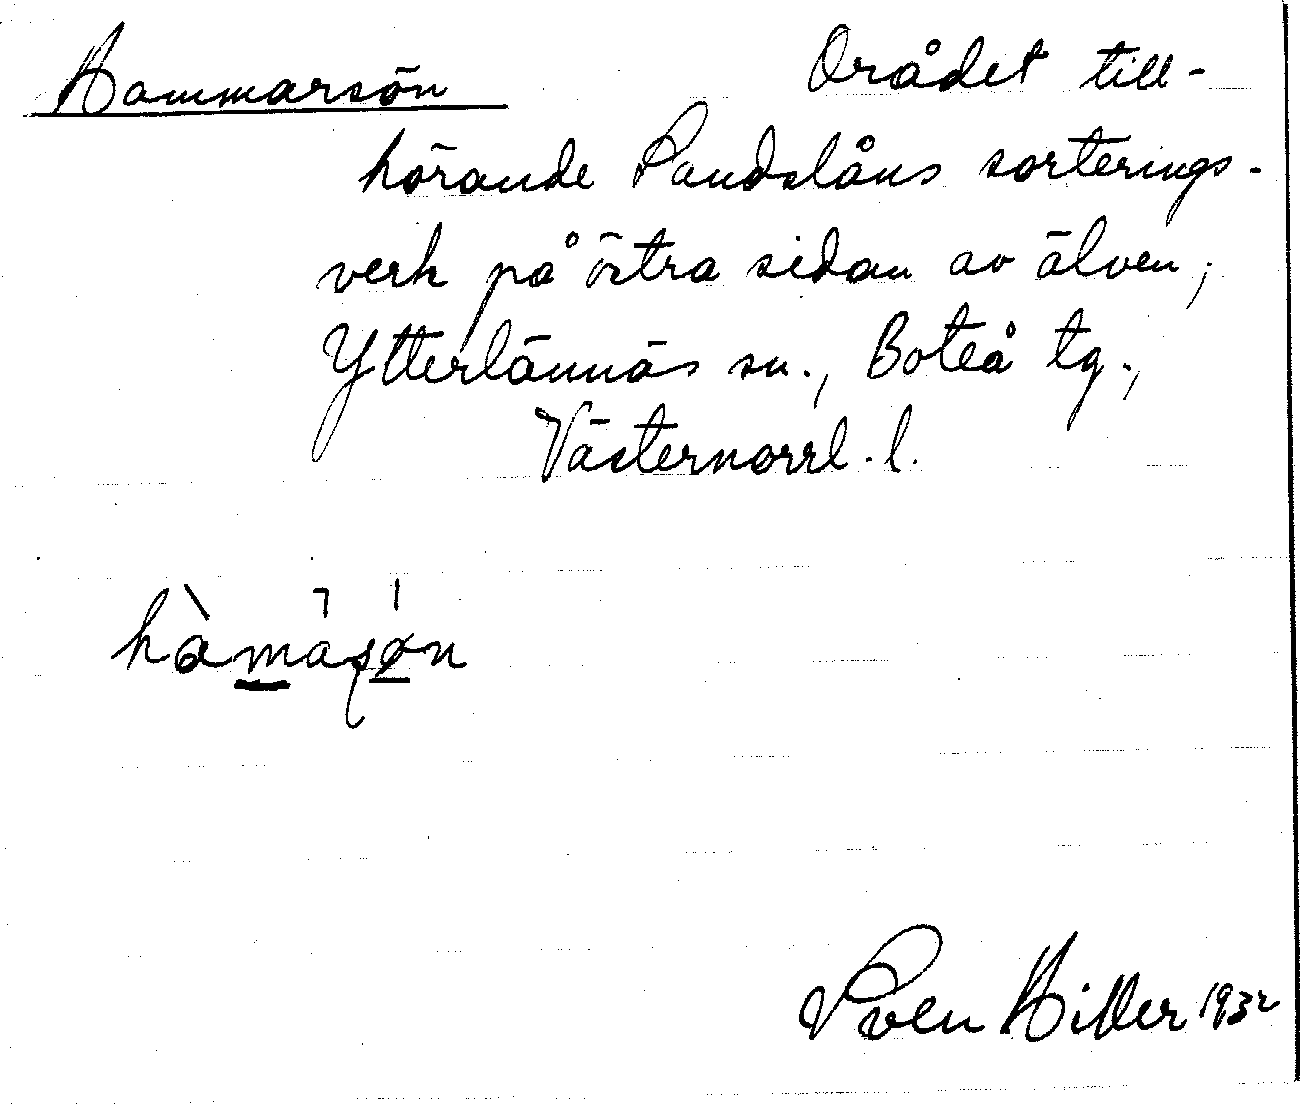 Hammarsön Området till-
hörande Sandslåns sorterings-
verk på östra sidan av älven,
Ytterlännäs sn., Boteå tg.,
Västernorrl. l.
hàmaʂøn
Sven Hiller 1932